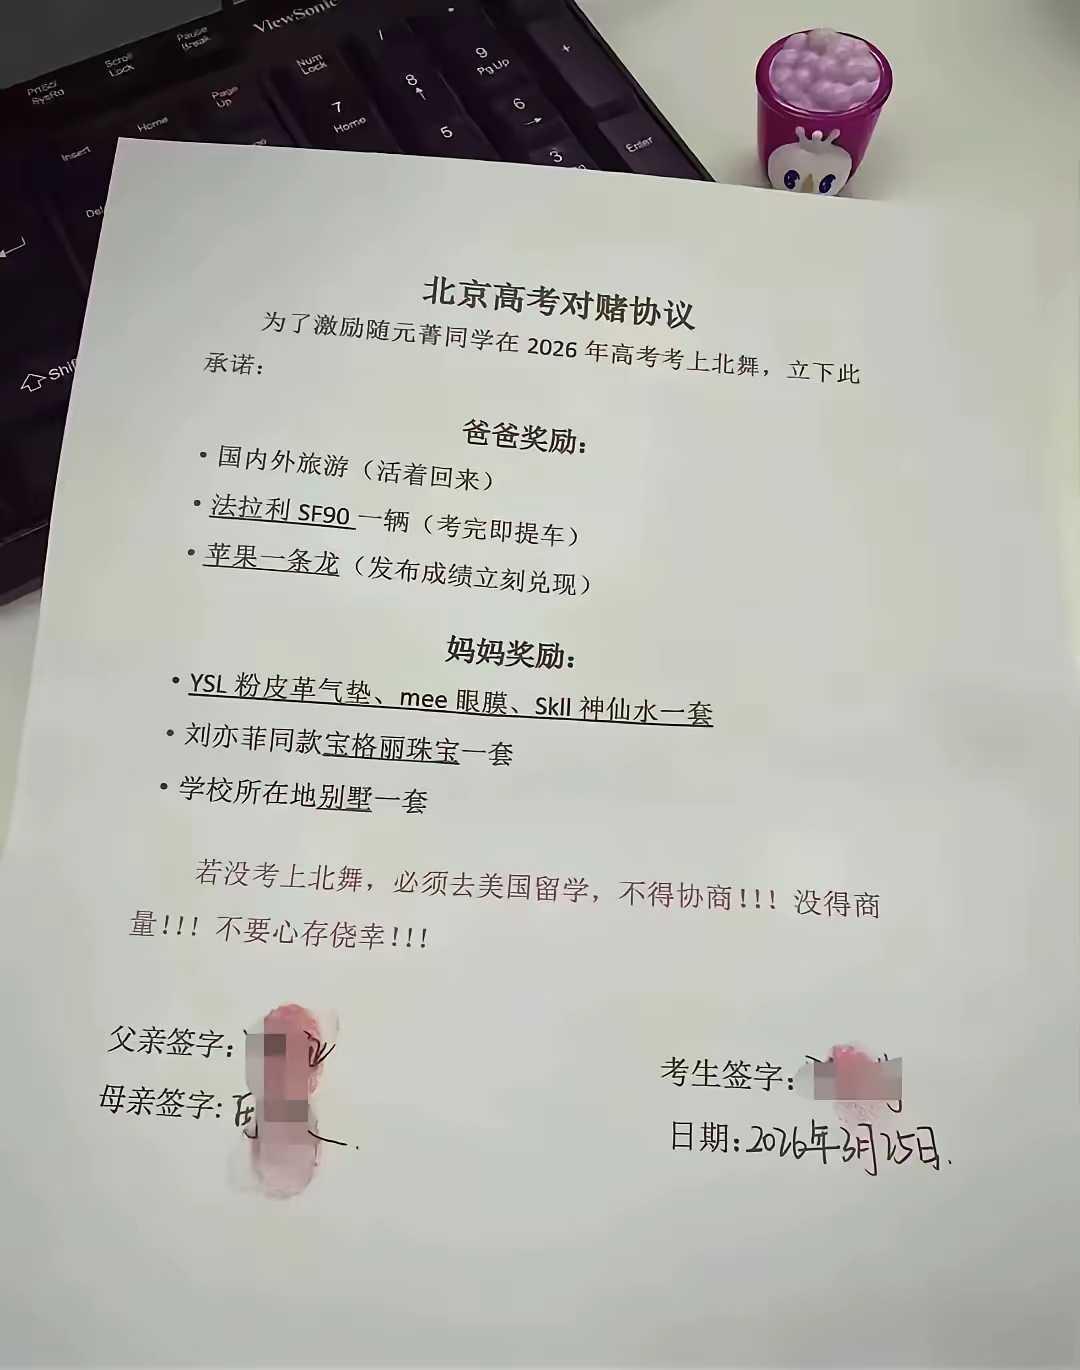 ViewSonic
Pause
Break
Scroll
Lock
PrtScr
SysRq
Num
Lock
Page
Up
Home
Insert
/
+
7
Home
8
9
Pg Up
5
6
3
Enter
Del
Shift
北京高考对赌协议
为了激励随元菁同学在 2026 年高考考上北舞，立下此
承诺：
爸爸奖励：
• 国内外旅游（活着回来）
• 法拉利 SF90 一辆（考完即提车）
• 苹果一条龙（发布成绩立刻兑现）
妈妈奖励：
• YSL 粉皮革气垫、mee 眼膜、Skll 神仙水一套
• 刘亦菲同款宝格丽珠宝一套
• 学校所在地别墅一套
若没考上北舞，必须去美国留学，不得协商！！！没得商
量！！！不要心存侥幸！！！
父亲签字：
母亲签字：
考生签字：
日期：2026年3月25日.